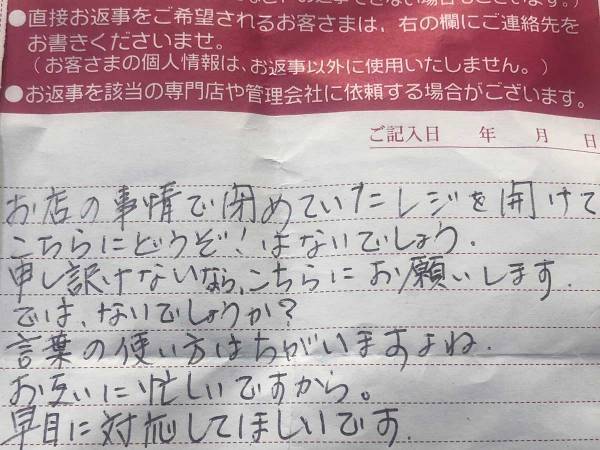 ●直接お返事をご希望されるお客さまは、右の欄にご連絡先を
お書きくださいませ。
(お客さまの個人情報は、お返事以外に使用いたしません。)
●お返事を該当の専門店や管理会社に依頼する場合がございます。
ご記入日 年 月 日
お店の事情で閉めていたレジを開けて
こちらにどうぞ!はないでしょう.
申し訳けないなら、こちらにお願いします.
では、ないでしょうか?
言葉の使い方はちがいますよね.
お互いに忙しいですから。
早目に対応してほしいです.